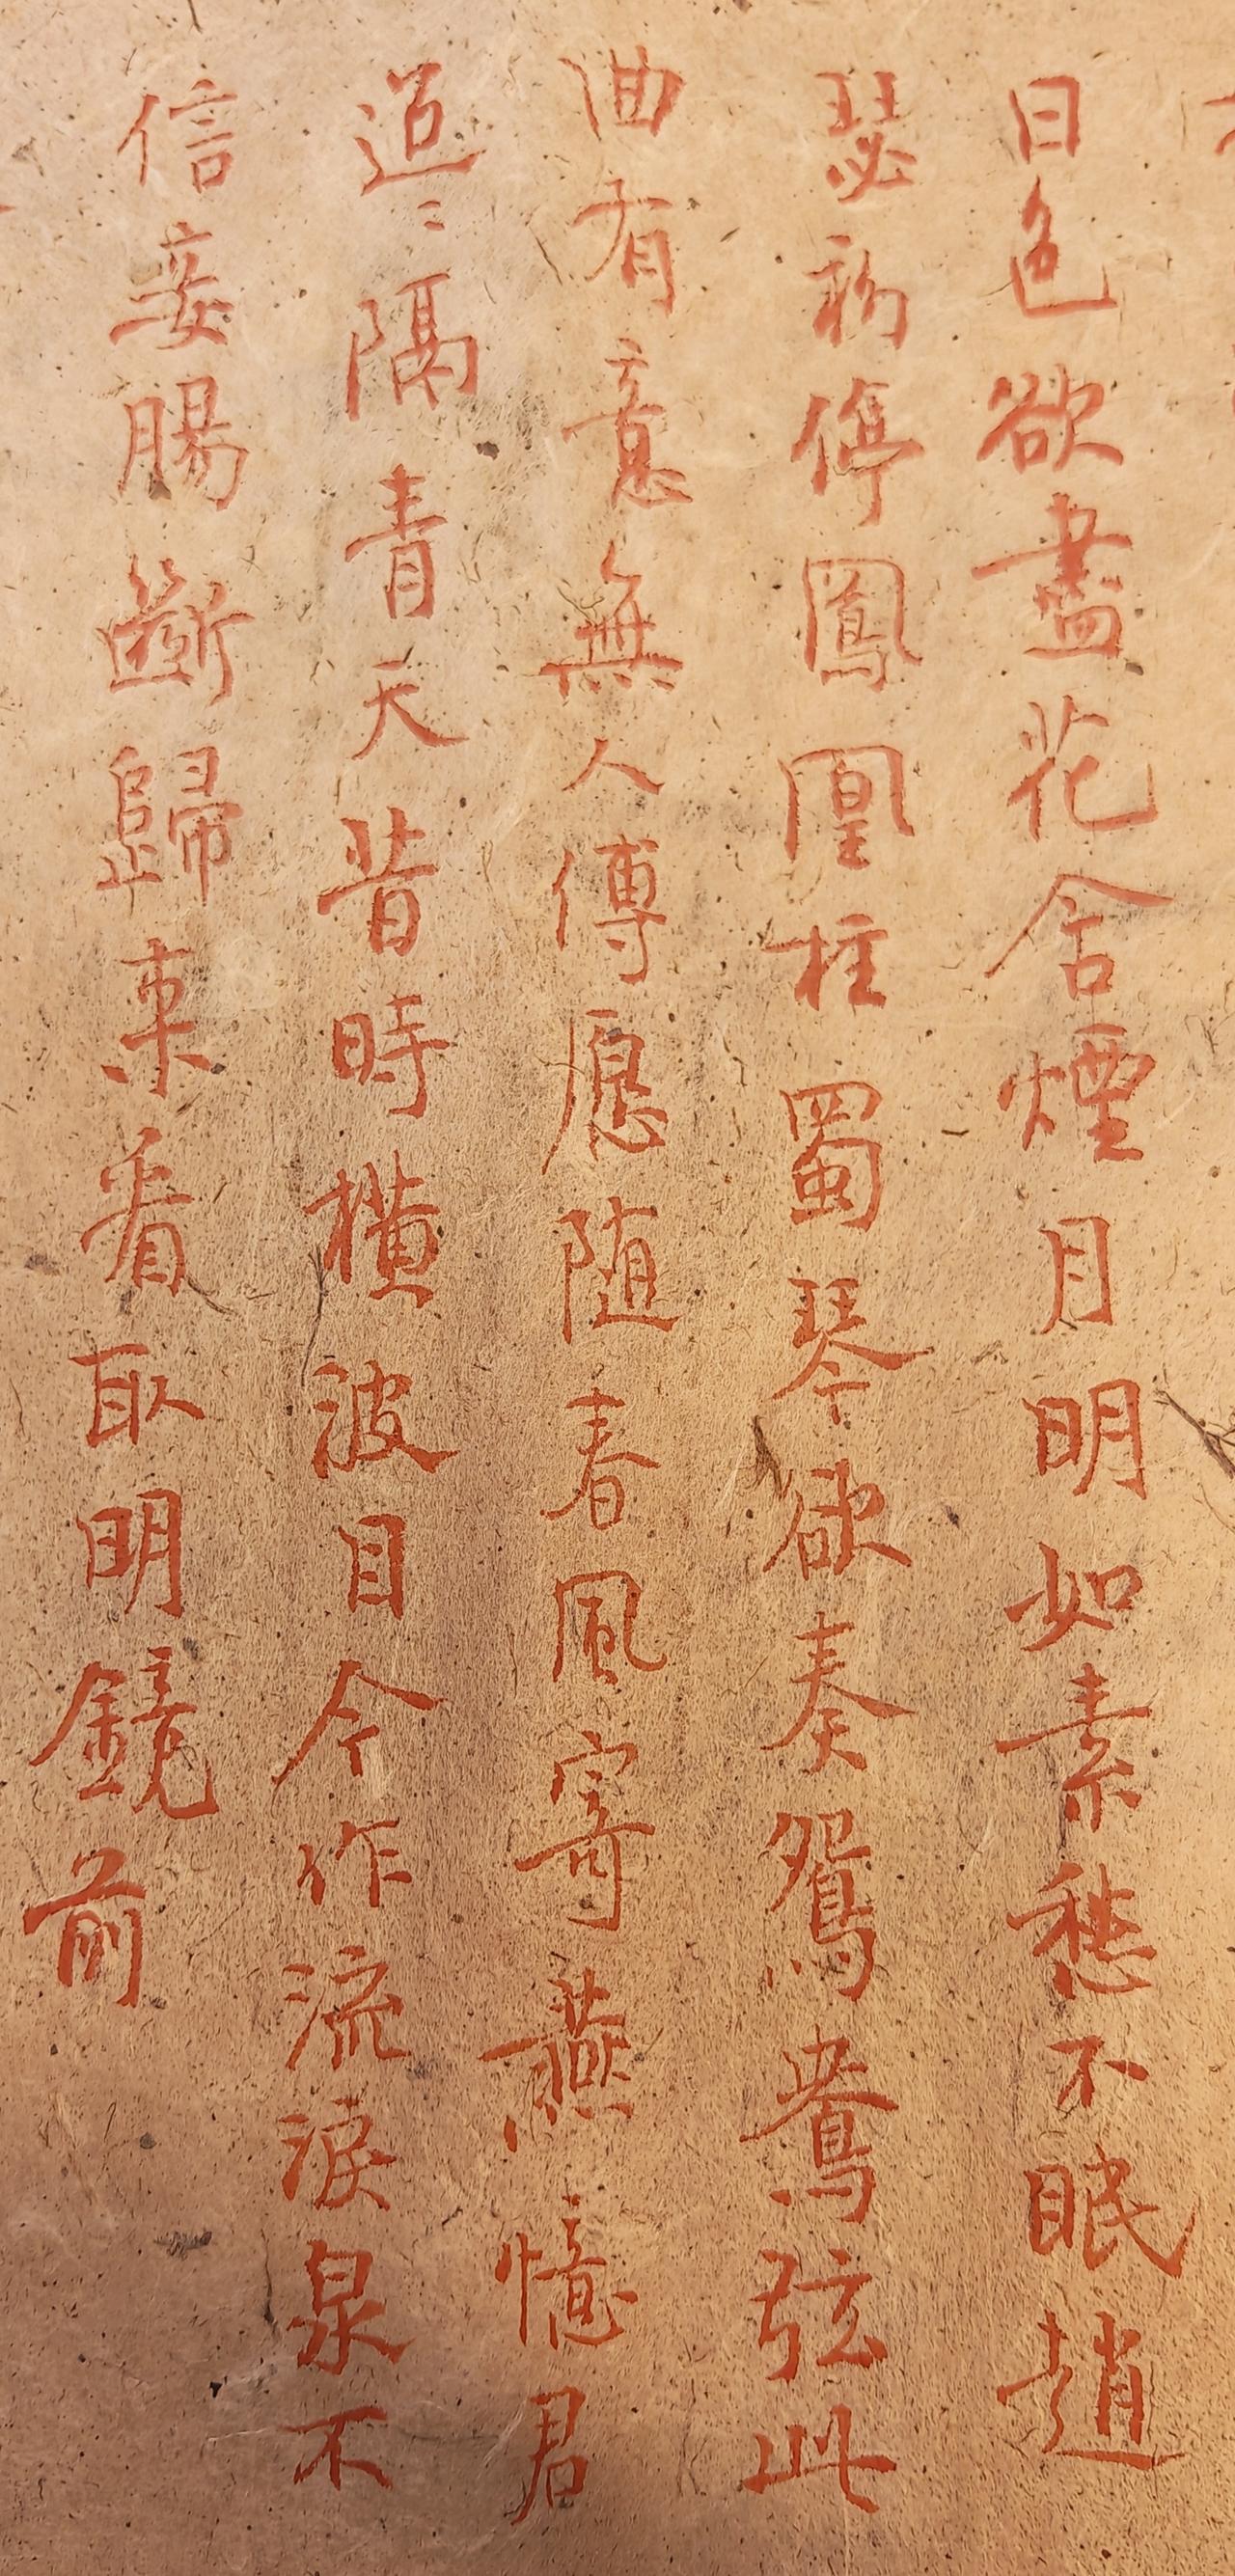 日色欲盡花含煙月明如素愁不眠趙
瑟初停鳳凰柱蜀琴欲奏鴛鴦弦此
曲有意無人傳愿随春風寄燕憶君
迢〻隔青天昔時横波目今作流淚泉不
信妾腸斷歸来看取明鏡前